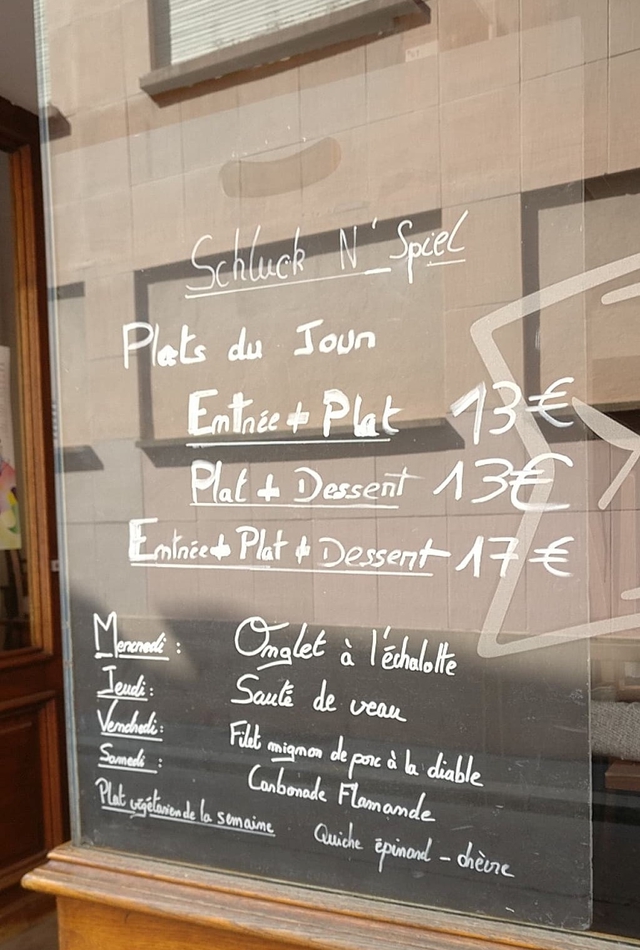 Schluck N' Spiel
Plats du Jour
Entrée + Plat 13 €
Plat + Dessert 13 €
Entrée + Plat + Dessert 17 €
Mercredi : Onglet à l'échalotte
Jeudi : Sauté de veau
Vendredi : Filet mignon de porc à la diable
Samedi : Carbonade Flamande
Plat végétarien de la semaine Quiche épinard - chèvre